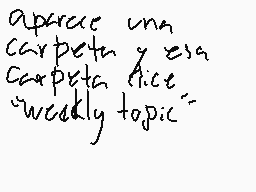 aparece una
carpeta y esa
carpeta dice
"weekly topic"